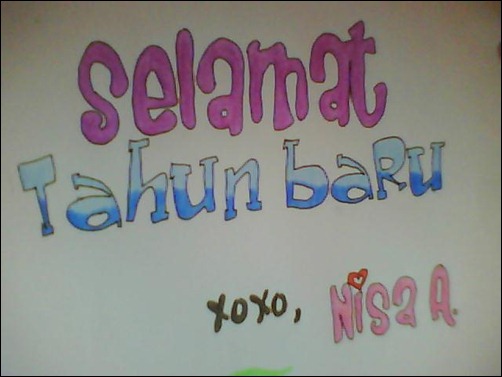 Selamat
Tahun baRu
xoxo, Nisa A.